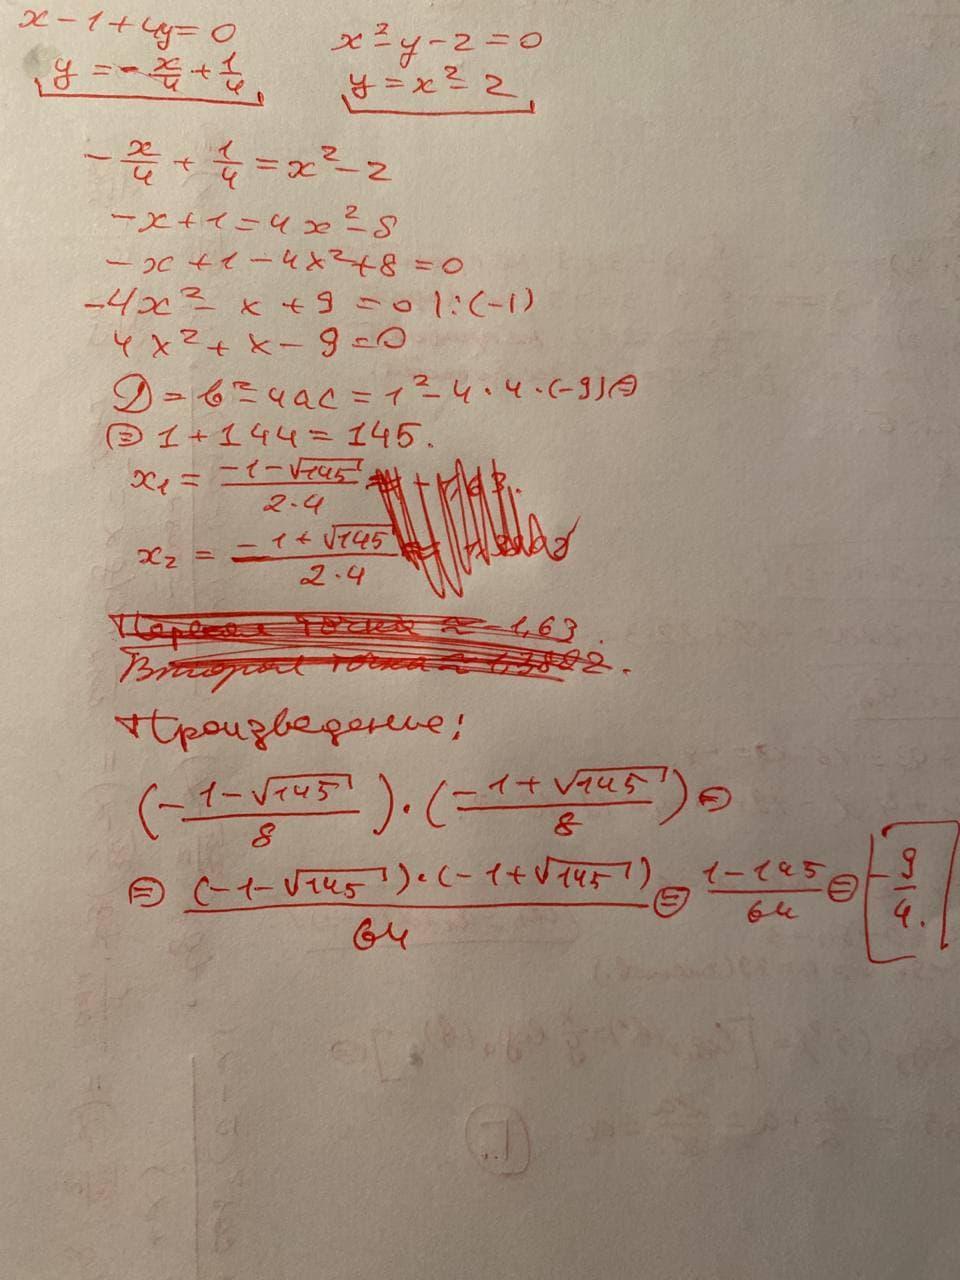 x - 1 + 4y = 0
y = - x/4 + 1/4
x² - y - 2 = 0
y = x² - 2
- x/4 + 1/4 = x² - 2
- x + 1 = 4x² - 8
- x + 1 - 4x² + 8 = 0
-4x² - x + 9 = 0 |:(-1)
4x² + x - 9 = 0
D = b² - 4ac = 1² - 4 · 4 · (-9) =
= 1 + 144 = 145.
x₁ = (-1 - √145)/(2·4)
x₂ = (-1 + √145)/(2·4)
Первая точка ≈ -1,63.
Вторая точка ≈
Произведение:
(- (1 - √145)/8) · ((-1 + √145)/8) =
= ((-1 - √145) · (-1 + √145))/64 = (1 - 145)/64 = - 9/4.